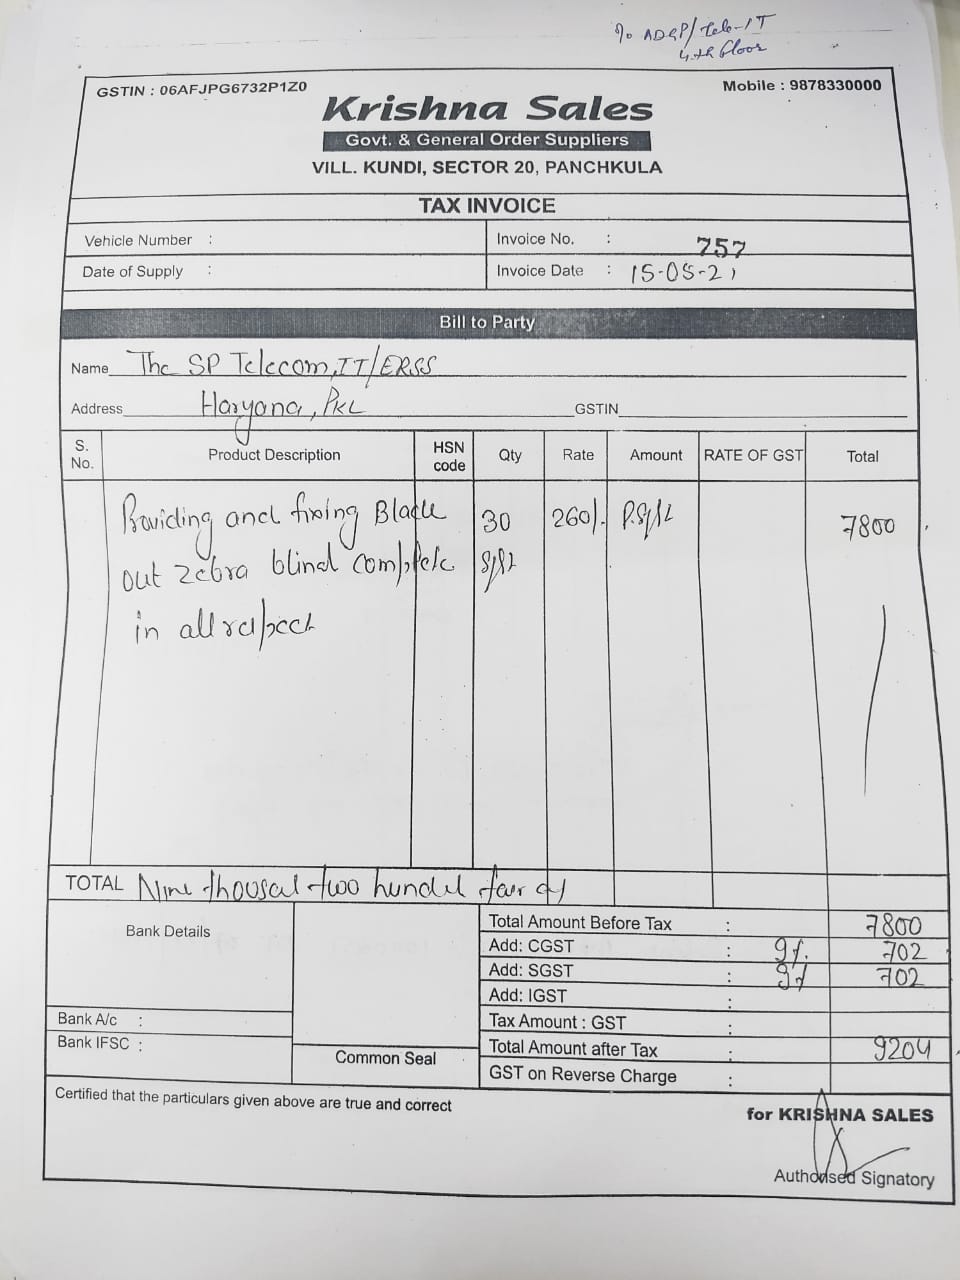 To ADGP/Tele-IT
4th floor
GSTIN : 06AFJPG6732P1Z0
Mobile : 9878330000
Krishna Sales
Govt. & General Order Suppliers
VILL. KUNDI, SECTOR 20, PANCHKULA
TAX INVOICE
Vehicle Number :
Invoice No. : 757
Date of Supply :
Invoice Date : 15-05-21
Bill to Party
Name The SP Telecom, IT/ERSS
Address Haryana, PKL GSTIN
S. No. Product Description HSN code Qty Rate Amount RATE OF GST Total
Providing and fixing Black 30 260/. P.Sft 7800
out zebra blind complete Sft
in all respect
TOTAL Nine thousand two hundred four
Bank Details
Total Amount Before Tax : 7800
Add: CGST : 9%. 702
Add: SGST : 9% 702
Add: IGST :
Bank A/c :
Tax Amount : GST :
Bank IFSC :
Total Amount after Tax : 9204
Common Seal
GST on Reverse Charge :
Certified that the particulars given above are true and correct
for KRISHNA SALES
Authorised Signatory